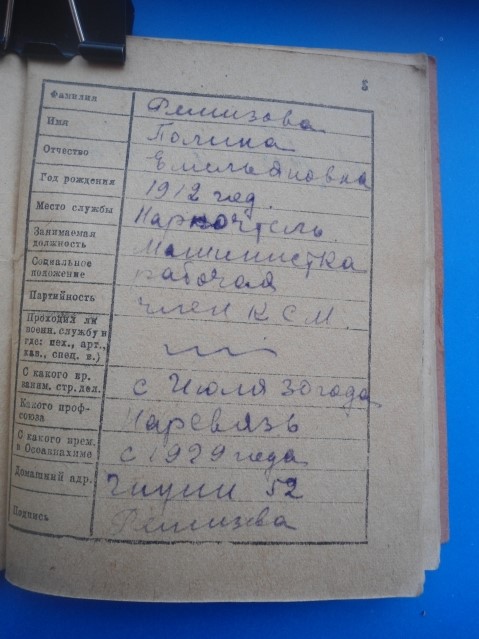 5
Фамилия Фемизова
Имя Полина
Отчество Емельяновна
Год рождения 1912 год.
Место службы
Занимаемая
должность Машинистка
Социальное
положение рабочая
Партийность член КСМ.
Проходил ли
воен. службу и
где: пех., арт.,
кав., спец. и.)
С какого вр.
заним. стр. дел. с Июля 30 года
Какого проф-
союза Нарсвязь
С какого врем.
в Осоавиахиме с 1929 года
Домашний адр. 52
Подпись Фемизова